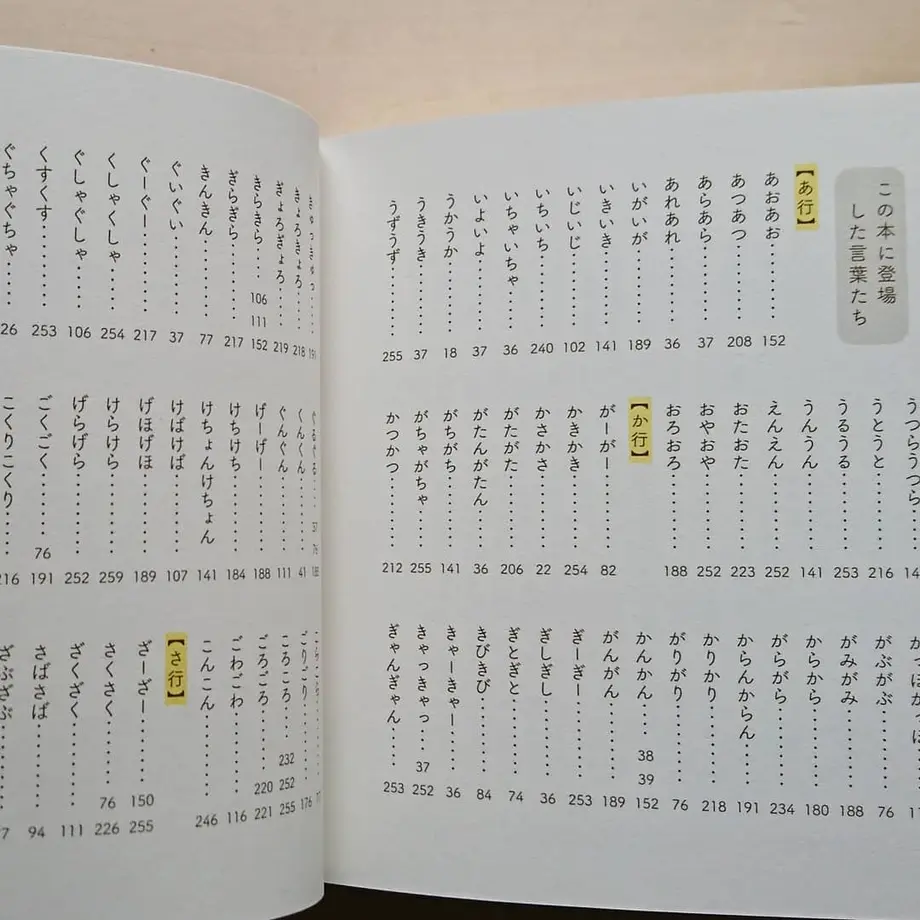 この本に登場
した言葉たち
【あ行】
あおあお 152
あつあつ 208
あらあら 37
あれあれ 36
いがいが 189
いきいき 141
いじいじ 102
いちいち 240
いちゃいちゃ 36
いよいよ 37
うかうか 18
うきうき 37
うずうず 255
うつらうつら
うとうと 216
うるうる 253
うんうん 141
えんえん 252
おたおた 223
おやおや 252
おろおろ 188
【か行】
がーがー 82
かきかき 254
かさかさ 22
がたがた 206
がたんがたん 36
がちがち 141
がちゃがちゃ 255
かつかつ 212
がぶがぶ 76
がみがみ 188
からから 180
がらがら 234
からんからん 191
かりかり 218
がりがり 76
かんかん 38 39 152
がんがん 189
ぎーぎー 253
ぎしぎし 36
ぎとぎと 74
きびきび 84
きゃーきゃー 36
きゃっきゃっ 37 252
ぎゃんぎゃん 253
きゅっきゅっ 191
きょろきょろ 218
ぎょろぎょろ 219
きらきら 106 111 152
ぎらぎら 217
きんきん 77
ぐいぐい 37
ぐーぐー 217
くしゃくしゃ 254
ぐしゃぐしゃ 106
くすくす 253
ぐちゃぐちゃ 26
ぐるぐる 37 76
くんくん 41
ぐんぐん 111
げーげー 188
けちけち 184
けちょんけちょん 141
けばけば 107
げほげほ 189
けらけら 259
げらげら 252
ごくごく 76 191
こくりこくり 216
ごりごり 176
ころころ 232 252 255
ごろごろ 220 221
ごわごわ 116
こんこん 246
【さ行】
ざーざー 150 255
さくさく 76 226
ざくざく 111
さばさば 94
ざぶざぶ